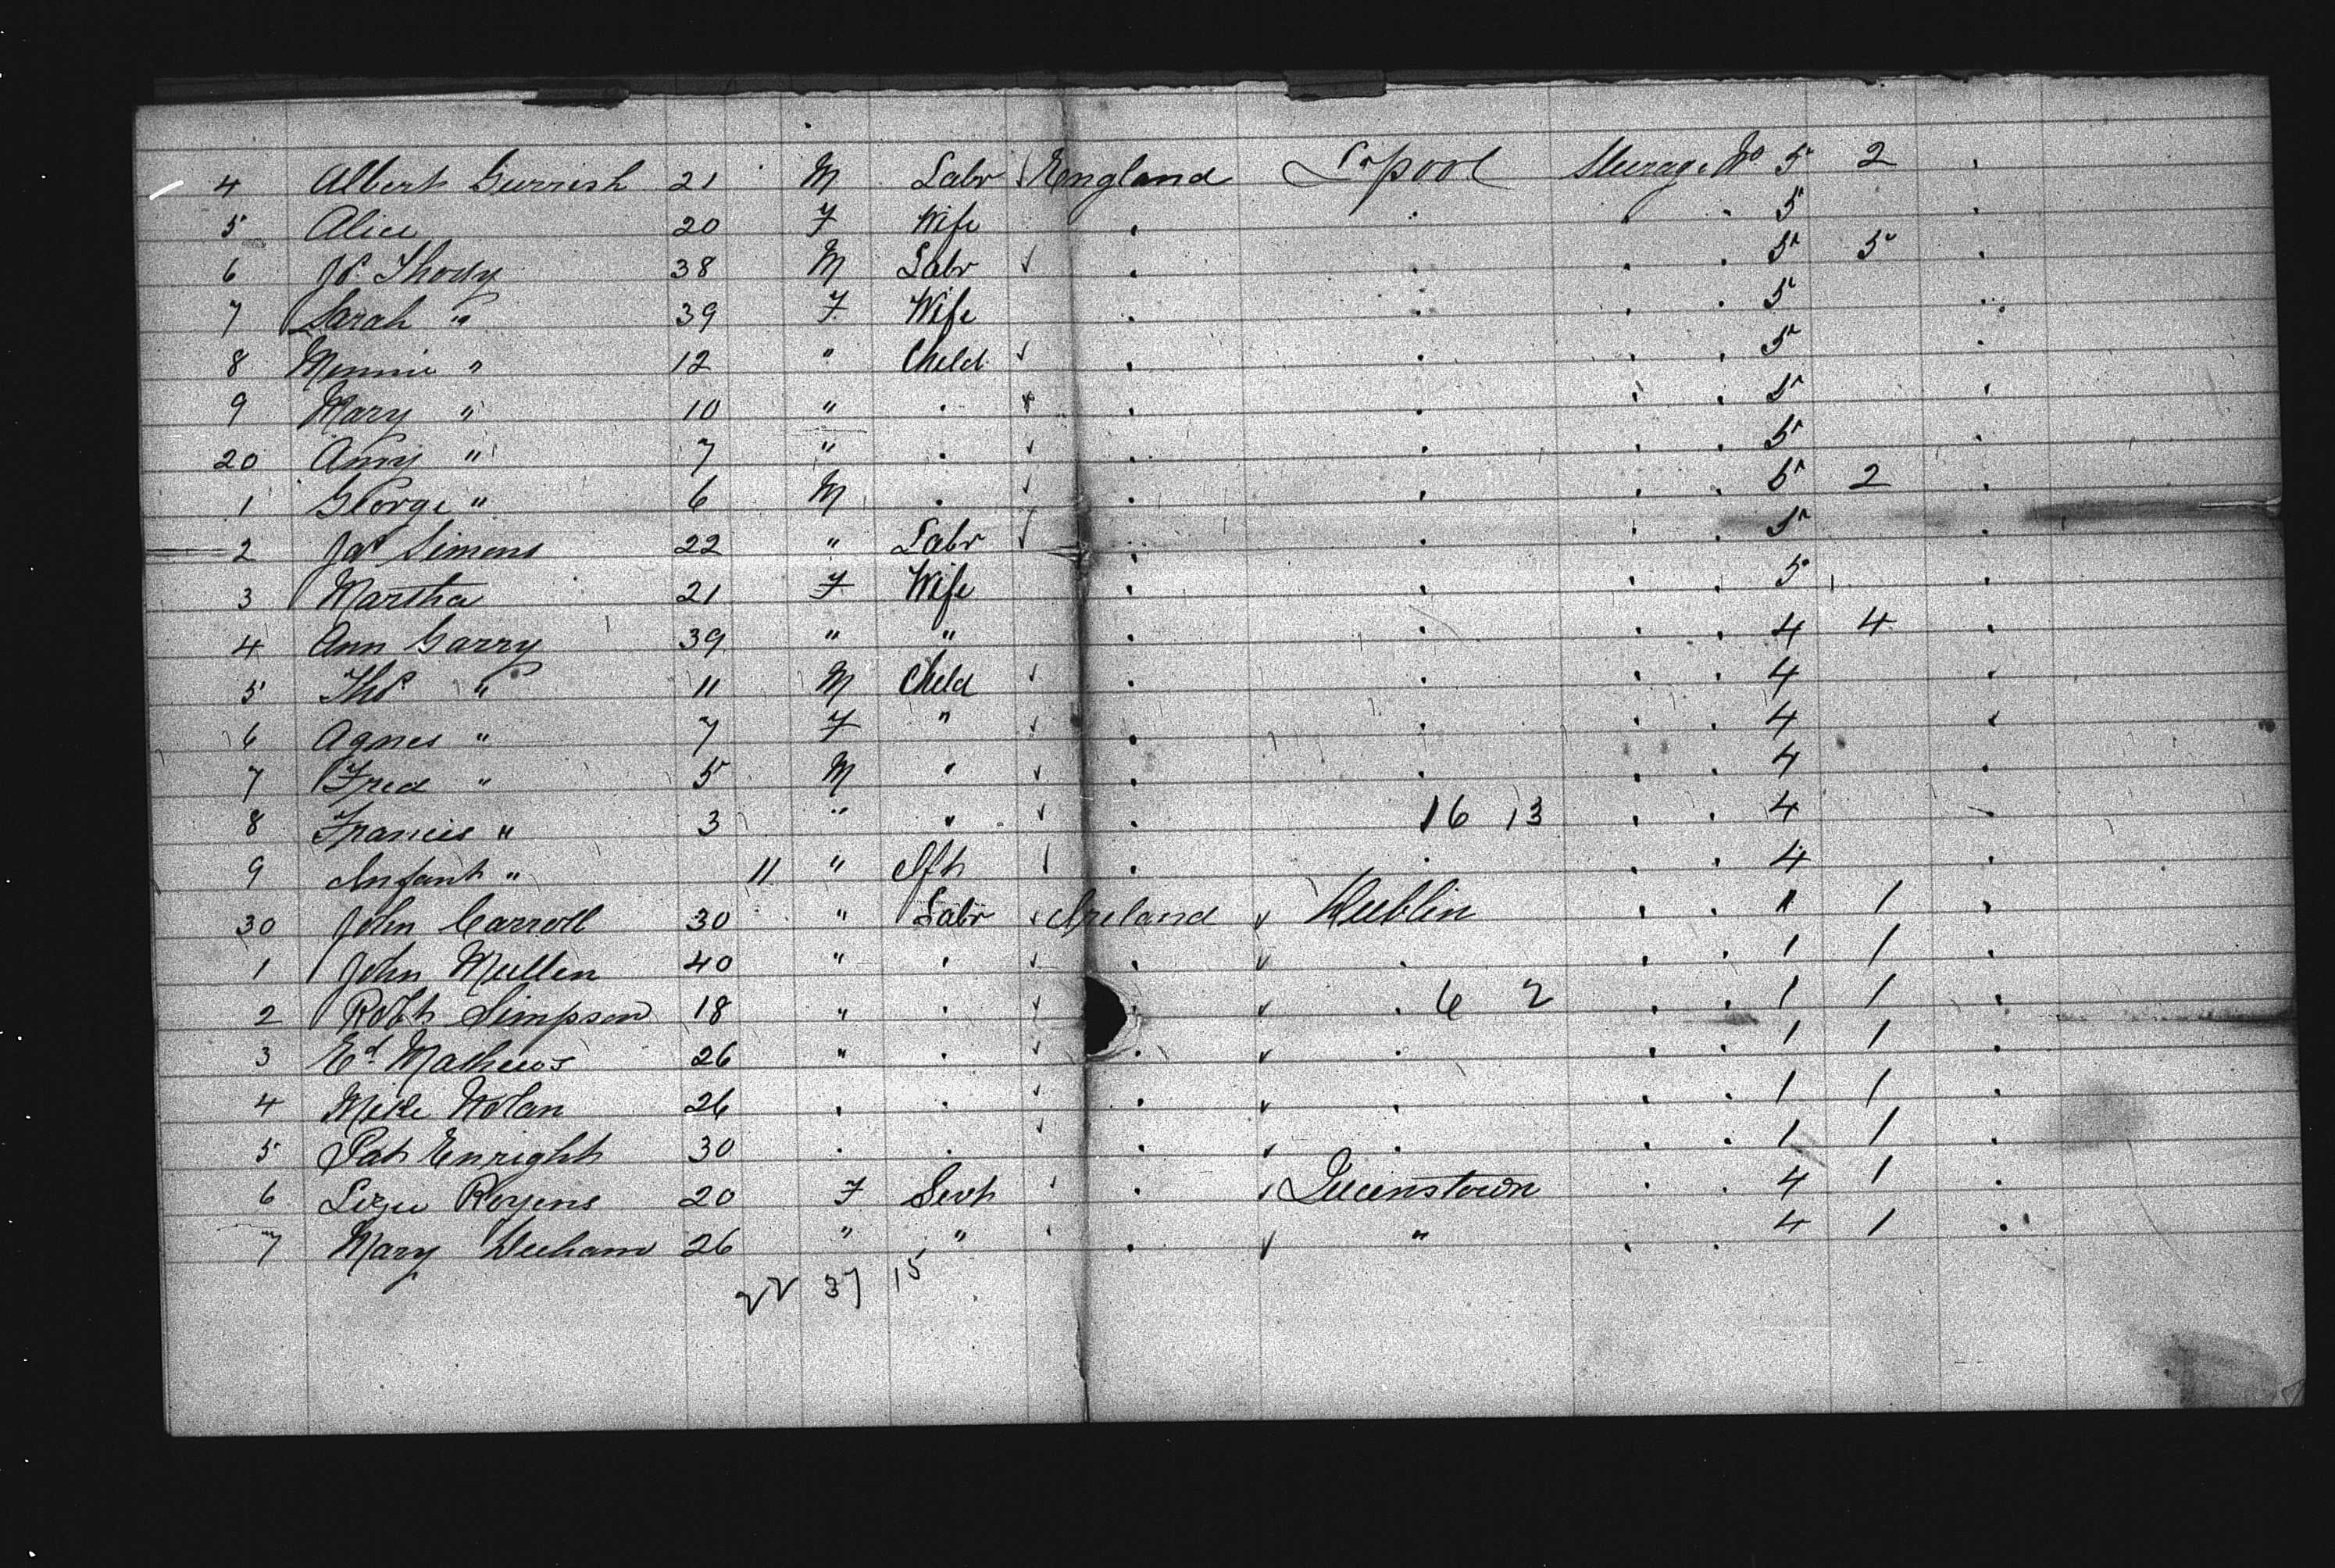 4 Albert Gurrish 21 M Labr England L'pool Steerage No 5 2 .
5 Alice 20 F Wife . . . . 5 .
6 Js Thody 38 M Labr . . . . 5 5 .
7 Sarah " 39 F Wife . . . . 5 .
8 Minnie " 12 " Child . . . . 5 .
9 Mary " 10 " . . . . . 5 .
20 Amy " 7 " . . . . . 5 .
1 George " 6 M . . . . . 5 2 .
2 Jas Simens 22 " Labr . . . . 5 .
3 Martha 21 F Wife . . . . 5 .
4 Ann Garry 39 " " . . . . 4 4 .
5 Ths " 11 M Child . . . . 4 .
6 Agnes " 7 F " . . . . 4 .
7 Fred " 5 M " . . . . 4 .
8 Francis " 3 " " . 16 13 . . 4 .
9 Infant " 11 " Ift . . . . 4 .
30 John Carroll 30 " Labr Ireland Dublin . . 1 1 .
1 John Mullen 40 " . . . . . 1 1 .
2 Robt Simpson 18 " . . . 6 2 . . 1 1 .
3 Ed Mathews 26 " . . . . . 1 1 .
4 Mike Nolan 26 . . . . . . 1 1 .
5 Pat Enright 30 . . . . . . 1 1 .
6 Lizie 20 F Sevt . Queenstown . . 4 1 .
7 Mary 26 " " . " . . 4 1 .
22 37 15